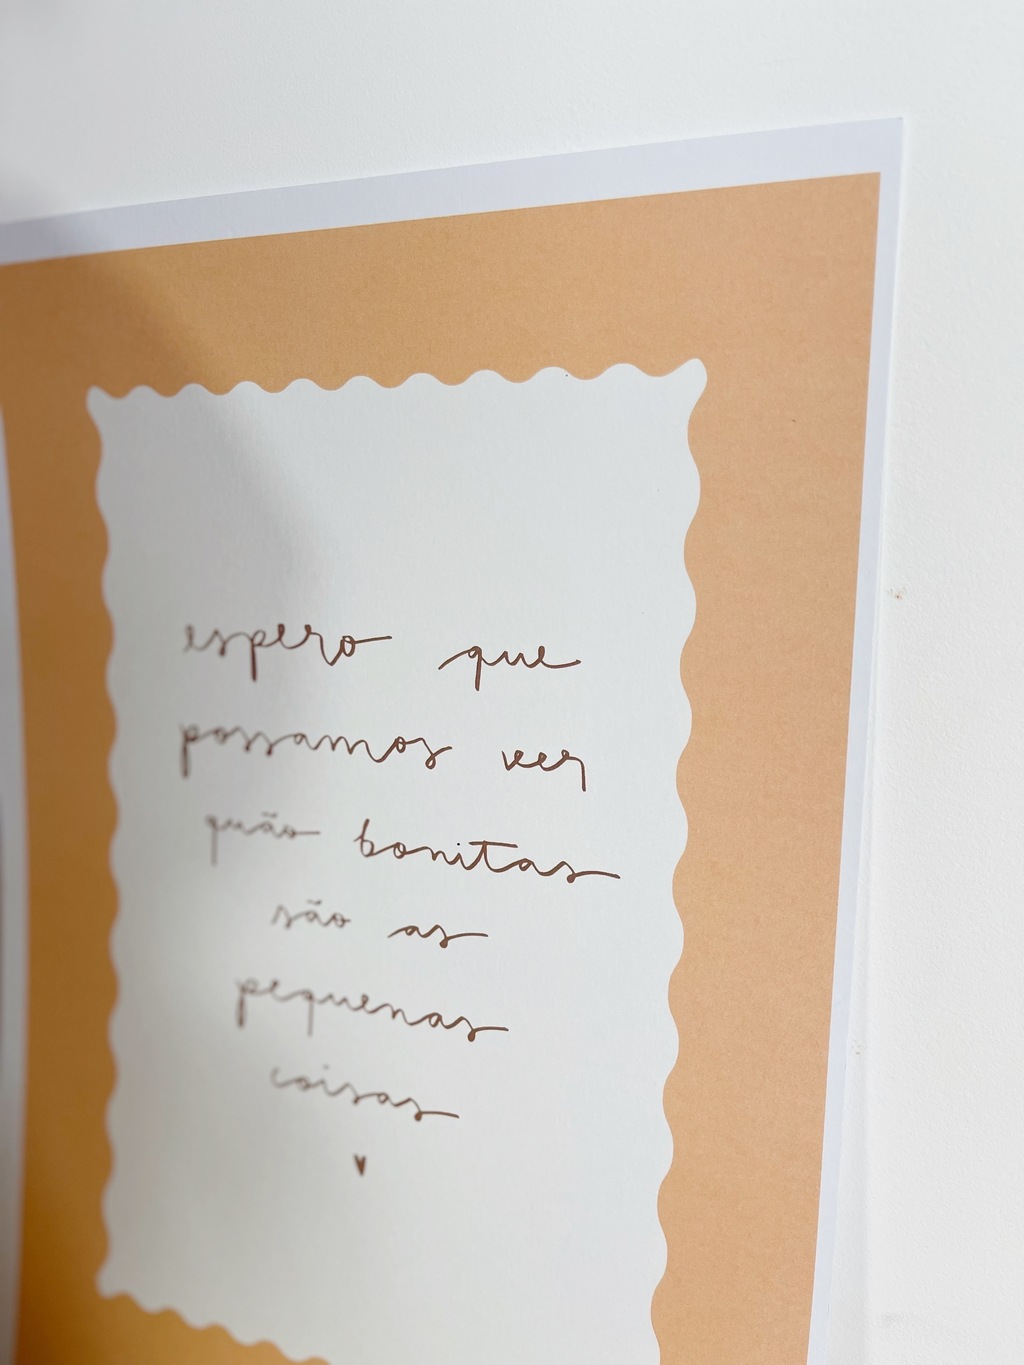 espero que
possamos ver
quão bonitas
são as
pequenas
coisas